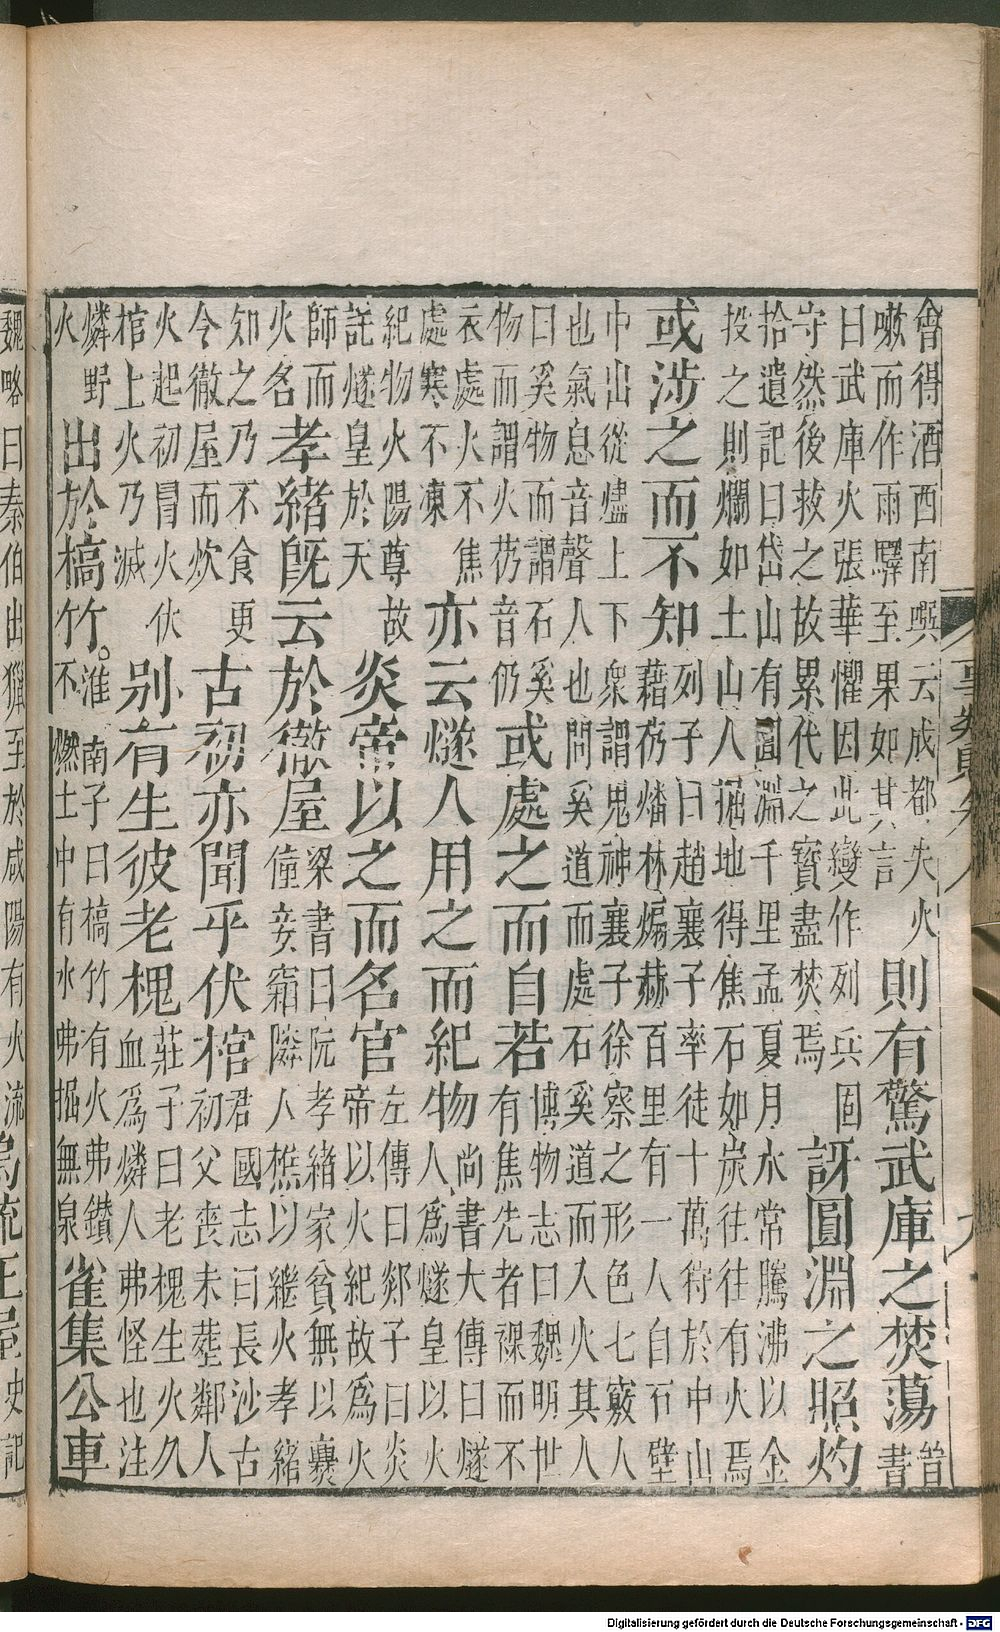 會得酒西南噀云成都失火
嗽而作雨驛至果如其言
則有驚武庫之焚蕩
晉
書
曰武庫火張華懼因此變作列兵固
守然後救之故累代之寶盡焚焉
訝圓淵之照灼
拾遺記曰岱山有圓淵千里孟夏月水常騰沸以金
投之則爛如土山人掘地得焦石如炭往往有火焉
或涉之而不知
列子曰趙襄子率徒十萬狩於中山
藉芿燔林煽赫百里有一人自石壁
中出從燼上下衆謂鬼神襄子徐察之形色七竅人
也氣息音聲人也問奚道而處石奚道而入火其人
曰奚物而謂石奚
物而謂火芿音仍
或處之而自若
博物志曰魏明世
有焦先者裸而不
衣處火不焦
處寒不凍
亦云燧人用之而紀物
尚書大傳曰燧
人爲燧皇以火
紀物火陽尊故
託燧皇於天
炎帝以之而名官
左傳曰郯子曰炎
帝以火紀故爲火
師而
火名
孝緒旣云於徹屋
梁書曰阮孝緒家貧無以爨
僮妾竊隣人樵以繼火孝緒
知之乃不食更
令徹屋而炊
古初亦聞乎伏棺
君國志曰長沙古
初父喪未塟鄰人
火起初冒火伏
棺上火乃滅
别有生彼老槐
莊子曰老槐生火久
血爲燐人弗怪也注
燐野
火
出於槁竹。
淮南子曰槁竹有火弗鑽
不燃土中有水弗掘無泉
雀集公車
魏略曰秦伯出獵至於咸陽有火流
史記
Digitalisierung gefördert durch die Deutsche Forschungsgemeinschaft - DFG